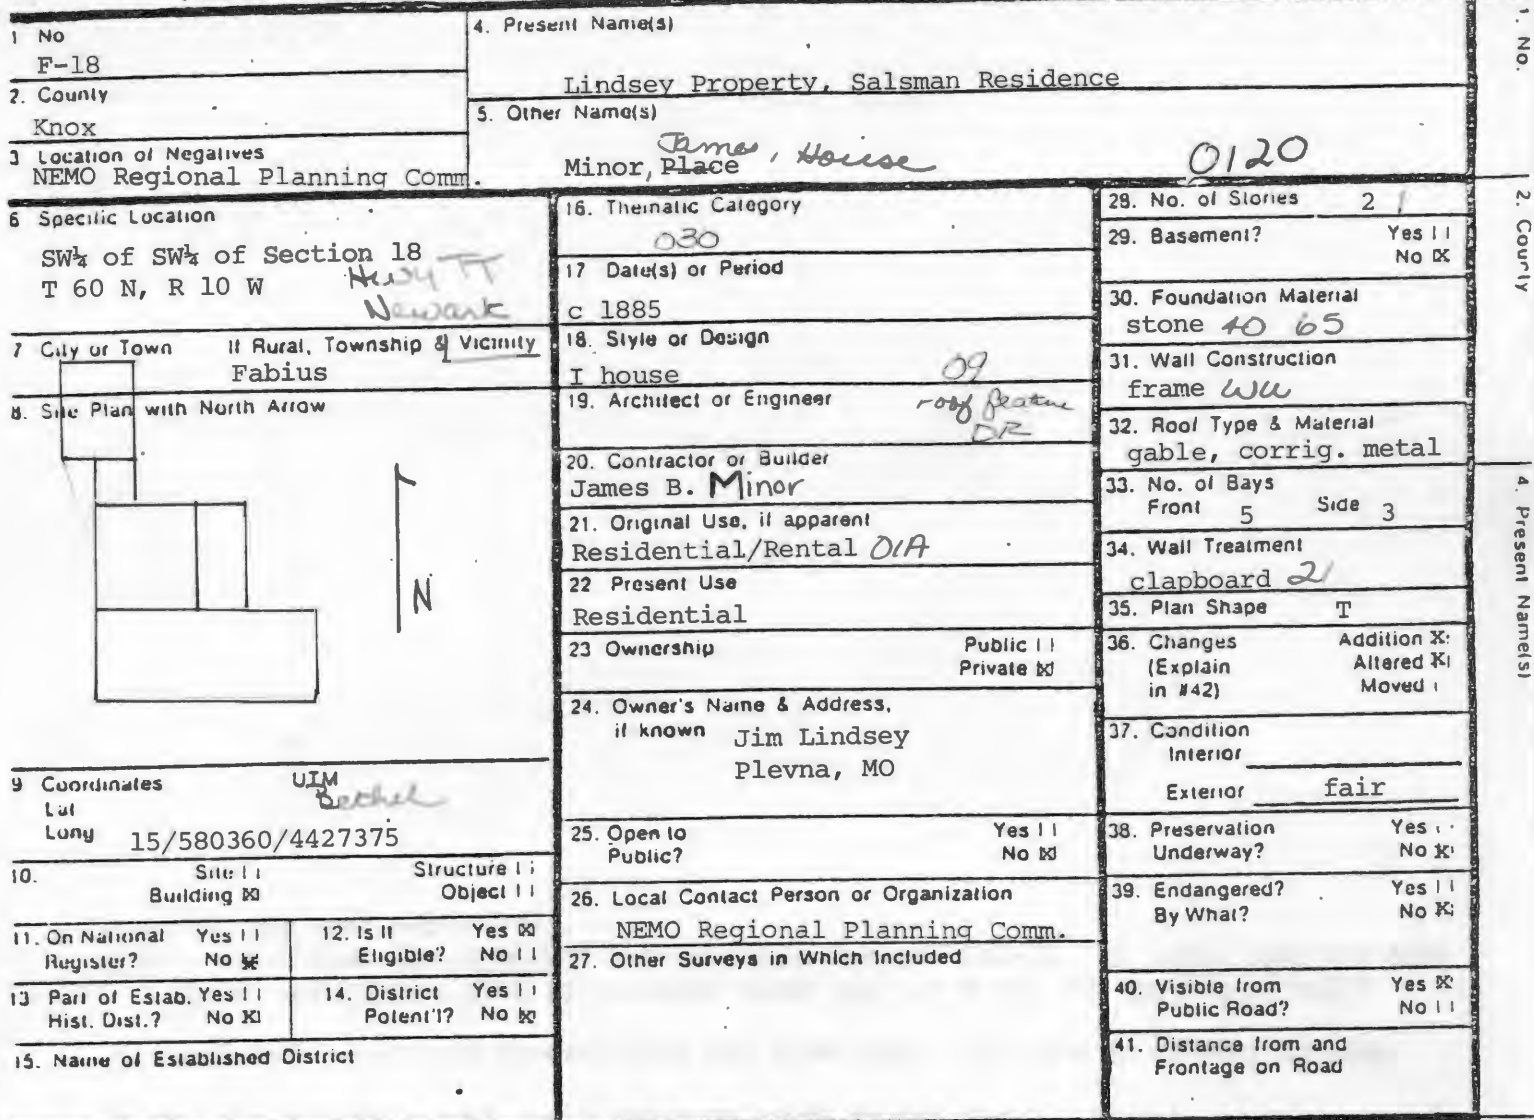 1 No
F-18
2. County
Knox
3 Location of Negatives
NEMO Regional Planning Comm.
4. Present Name(s)
Lindsey Property, Salsman Residence
5. Other Name(s)
Minor, Place James, House
0120
6 Specific Location
SW¼ of SW¼ of Section 18
T 60 N, R 10 W
Hwy TT
Newark
7 City or Town If Rural, Township & Vicinity
Fabius
8. Site Plan with North Arrow
N
9 Coordinates UTM
Bethel
Lat
Long 15/580360/4427375
10. Site | | Structure | |
Building [X] Object | |
11. On National Register? Yes | | No [X]
12. Is It Eligible? Yes [X] No | |
13 Part of Estab. Hist. Dist.? Yes | | No [X]
14. District Potent'l? Yes | | No [X]
15. Name of Established District
16. Thematic Category
030
17 Date(s) or Period
c 1885
18. Style or Design
I house 09
19. Architect or Engineer
roof feature
DR
20. Contractor or Builder
James B. Minor
21. Original Use, if apparent
Residential/Rental 01A
22 Present Use
Residential
23 Ownership Public | |
Private [X]
24. Owner's Name & Address,
if known Jim Lindsey
Plevna, MO
25. Open to Yes | |
Public? No [X]
26. Local Contact Person or Organization
NEMO Regional Planning Comm.
27. Other Surveys in Which Included
28. No. of Stories 2
29. Basement? Yes | |
No [X]
30. Foundation Material
stone 40 65
31. Wall Construction
frame WW
32. Roof Type & Material
gable, corrig. metal
33. No. of Bays
Front 5 Side 3
34. Wall Treatment
clapboard 21
35. Plan Shape T
36. Changes Addition X
(Explain Altered X
in #42) Moved
37. Condition
Interior
Exterior fair
38. Preservation Yes
Underway? No X
39. Endangered? Yes | |
By What? No X
40. Visible from Yes X
Public Road? No | |
41. Distance from and
Frontage on Road
1. No.
2. County
4. Present Name(s)